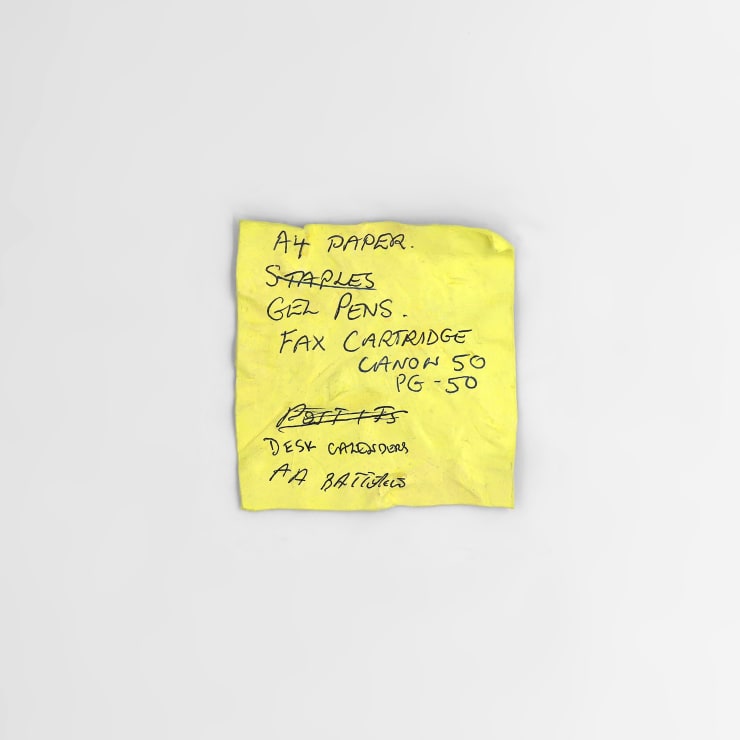 A4 PAPER.
STAPLES
GEL PENS.
FAX CARTRIDGE
CANON 50
PG-50
POSTITS
DESK CALENDERS
AA BATTERIES